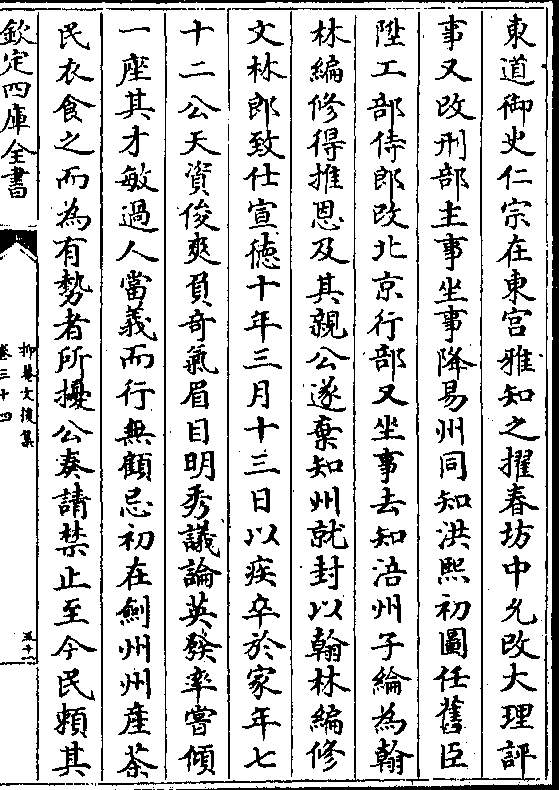 東道御史仁宗在東宫雅知之擢春坊中允改大理評
事又改刑部主事坐事降易州同知洪熙初圖任舊臣
陞工部侍郎改北京行部又坐事去知涪州子綸為翰
林編修得推恩及其親公遂棄知州就封以翰林編修
文林郎致仕宣徳十年三月十三日以疾卒於家年七
十二公天資俊爽負奇氣眉目明秀議論英發率嘗傾
一座其才敏過人當義而行無顧忌初在劍州州産茶
民衣食之而為有勢者所擾公奏請禁止至今民頼其
欽定四庫全書
抑菴文後集
卷三十四
五十一